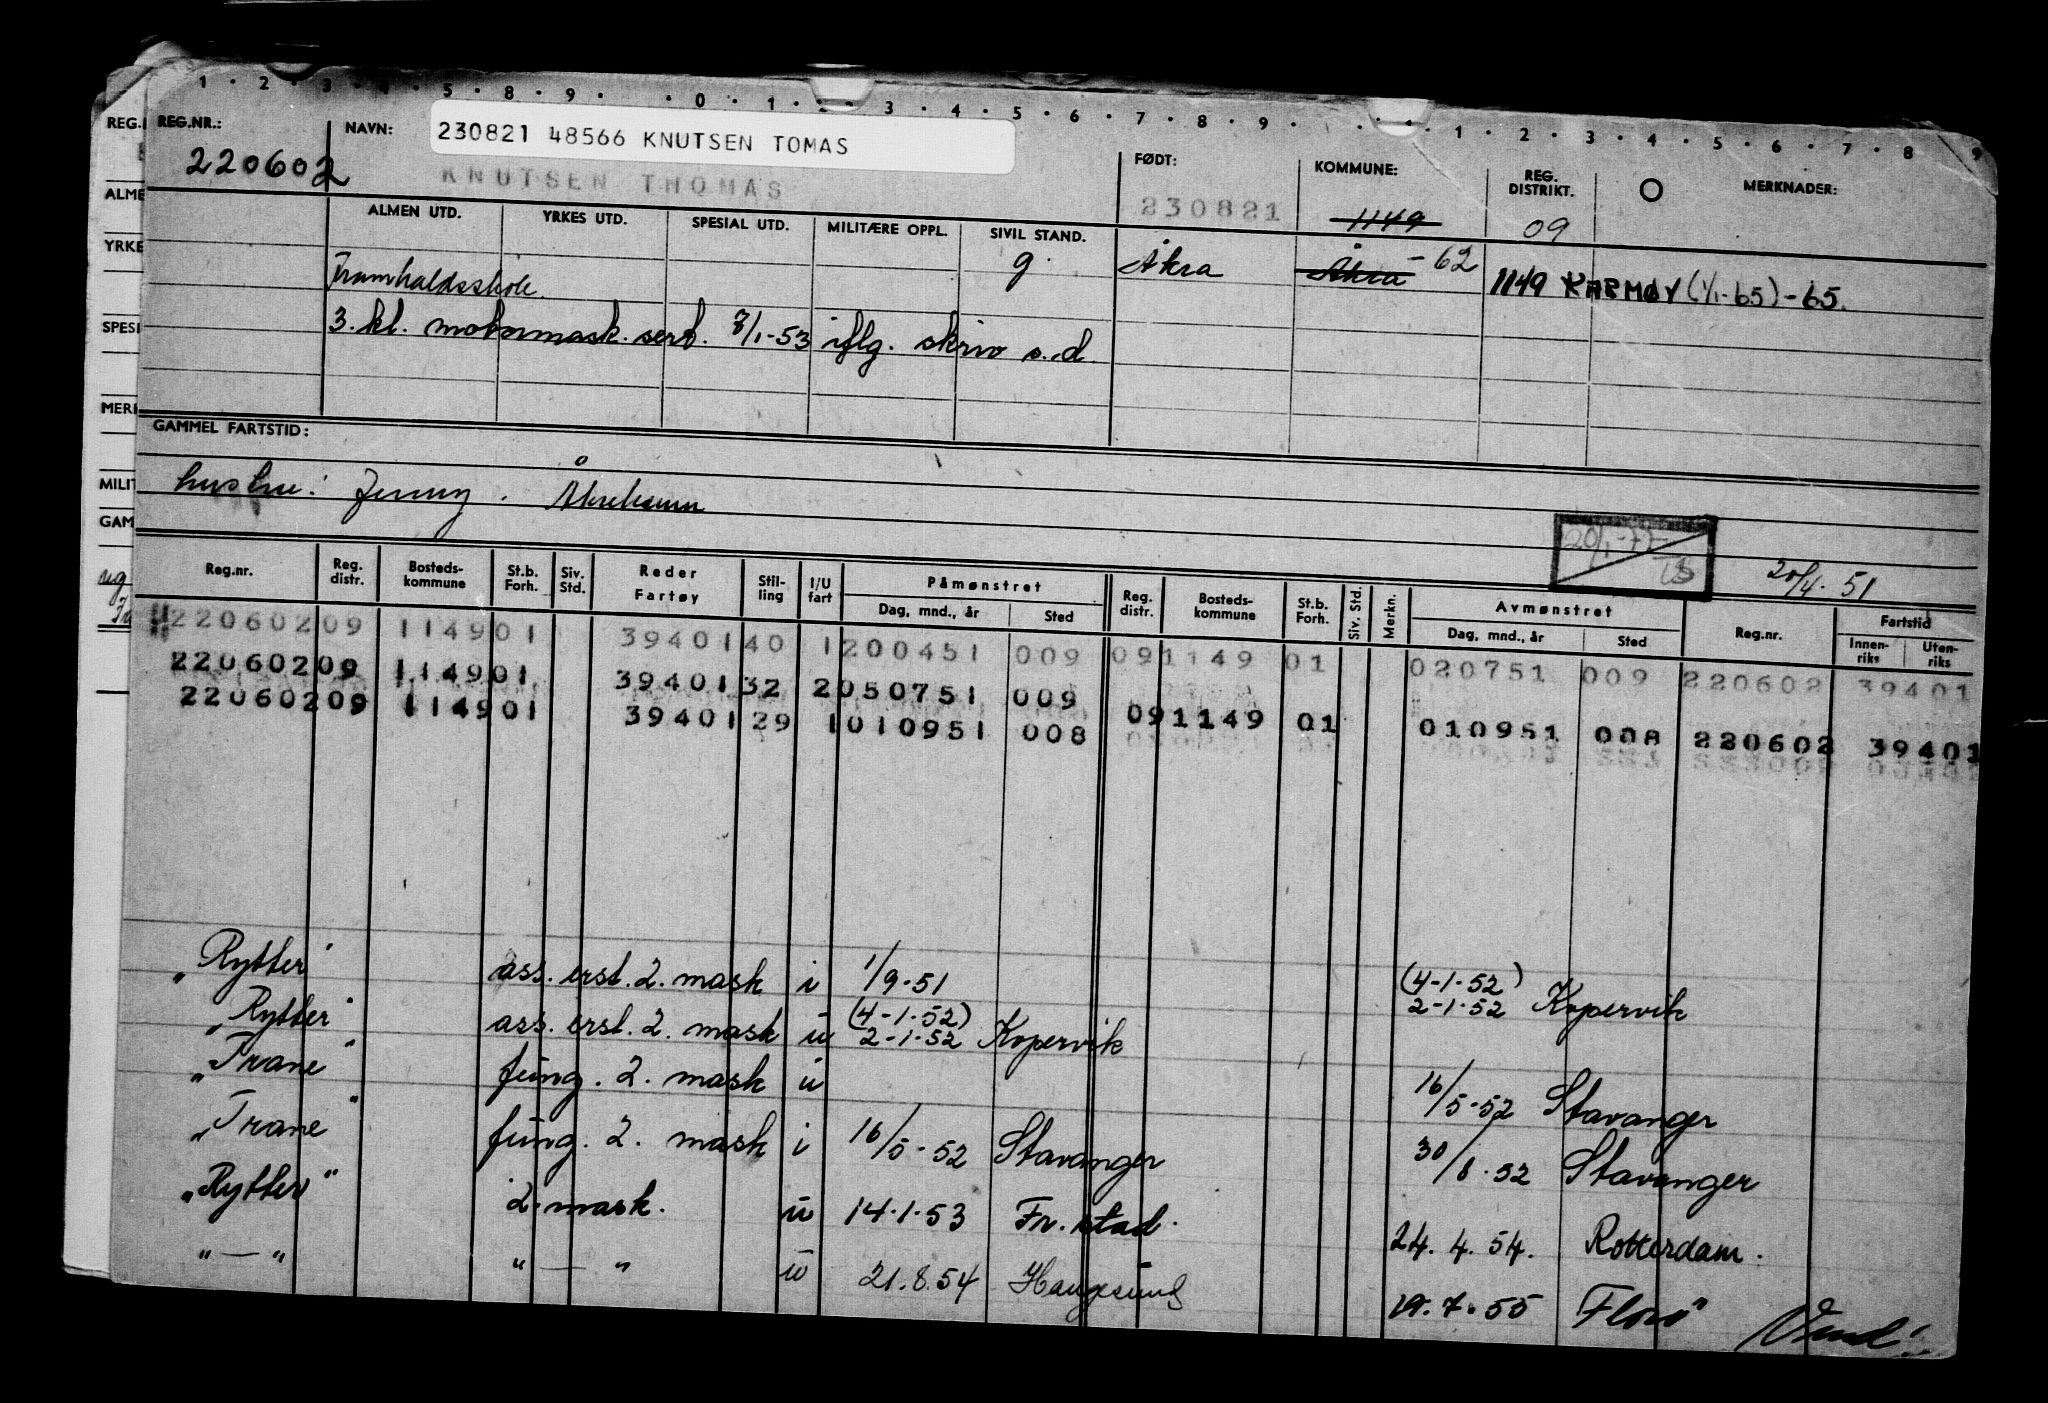 1 · 2 · 3 · 4 · 5 · 8 · 9 · · 0 · 1 · 2 · 3 · 4 · 5 · 6 · 7 · 8 · 9 · · 1 · 2 · 3 · 4 · 5 · 6 · 7 · 8 · 9
REG. REG.NR.: NAVN: 230821 48566 KNUTSEN TOMAS FØDT: KOMMUNE: REG. DISTRIKT. MERKNADER:
220602 KNUTSEN THOMAS 230821 1149 09
ALME ALMEN UTD. YRKES UTD. SPESIAL UTD. MILITÆRE OPPL. SIVIL STAND.
YRKE Framhaldsskole. g. Åkra Åkra -62 1149 KARMØY (1/1-65) -65.
SPESI 3. kl. motormask. sert. 7/1-53 iflg. skriv s.d.
MERI
GAMMEL FARTSTID:
MILIT hustru: Jenny. Åkrehamn
GAM
20/1-77
20/4-51
Reg.nr. Reg. distr. Bosteds- kommune St.b. Forh. Siv. Std. Reder Fartøy Stil- ling I/U fart Påmønstret Dag, mnd., år Sted Reg. distr. Bosteds- kommune St.b. Forh. Siv. Std. Merkn. Avmønstret Dag, mnd., år Sted Reg.nr. Fartstid Innen- riks Uten- riks
220602 09 1149 01 39401 40 1 200451 009 09 1149 01 020751 009 220602 39401
220602 09 1149 01 39401 32 2 050751 009
220602 09 1149 01 39401 29 1 010951 008 09 1149 01 010951 008 220602 39401
"Rytter" ass. erst. 2. mask i 1/9-51 (4-1-52) 2-1-52 Kopervik
"Rytter" ass. erst. 2. mask u (4-1-52) 2-1-52 Kopervik
"Trane" fung. 2. mask u 16/5-52 Stavanger
"Trane" fung. 2. mask i 16/5-52 Stavanger 30/8-52 Stavanger
"Rytter" 2. mask. u 14.1.53 Fr.stad. 24.4.54. Rotterdam.
" — " " — " u 21.8.54 Haugesund 19.7.55 Florø Vend!